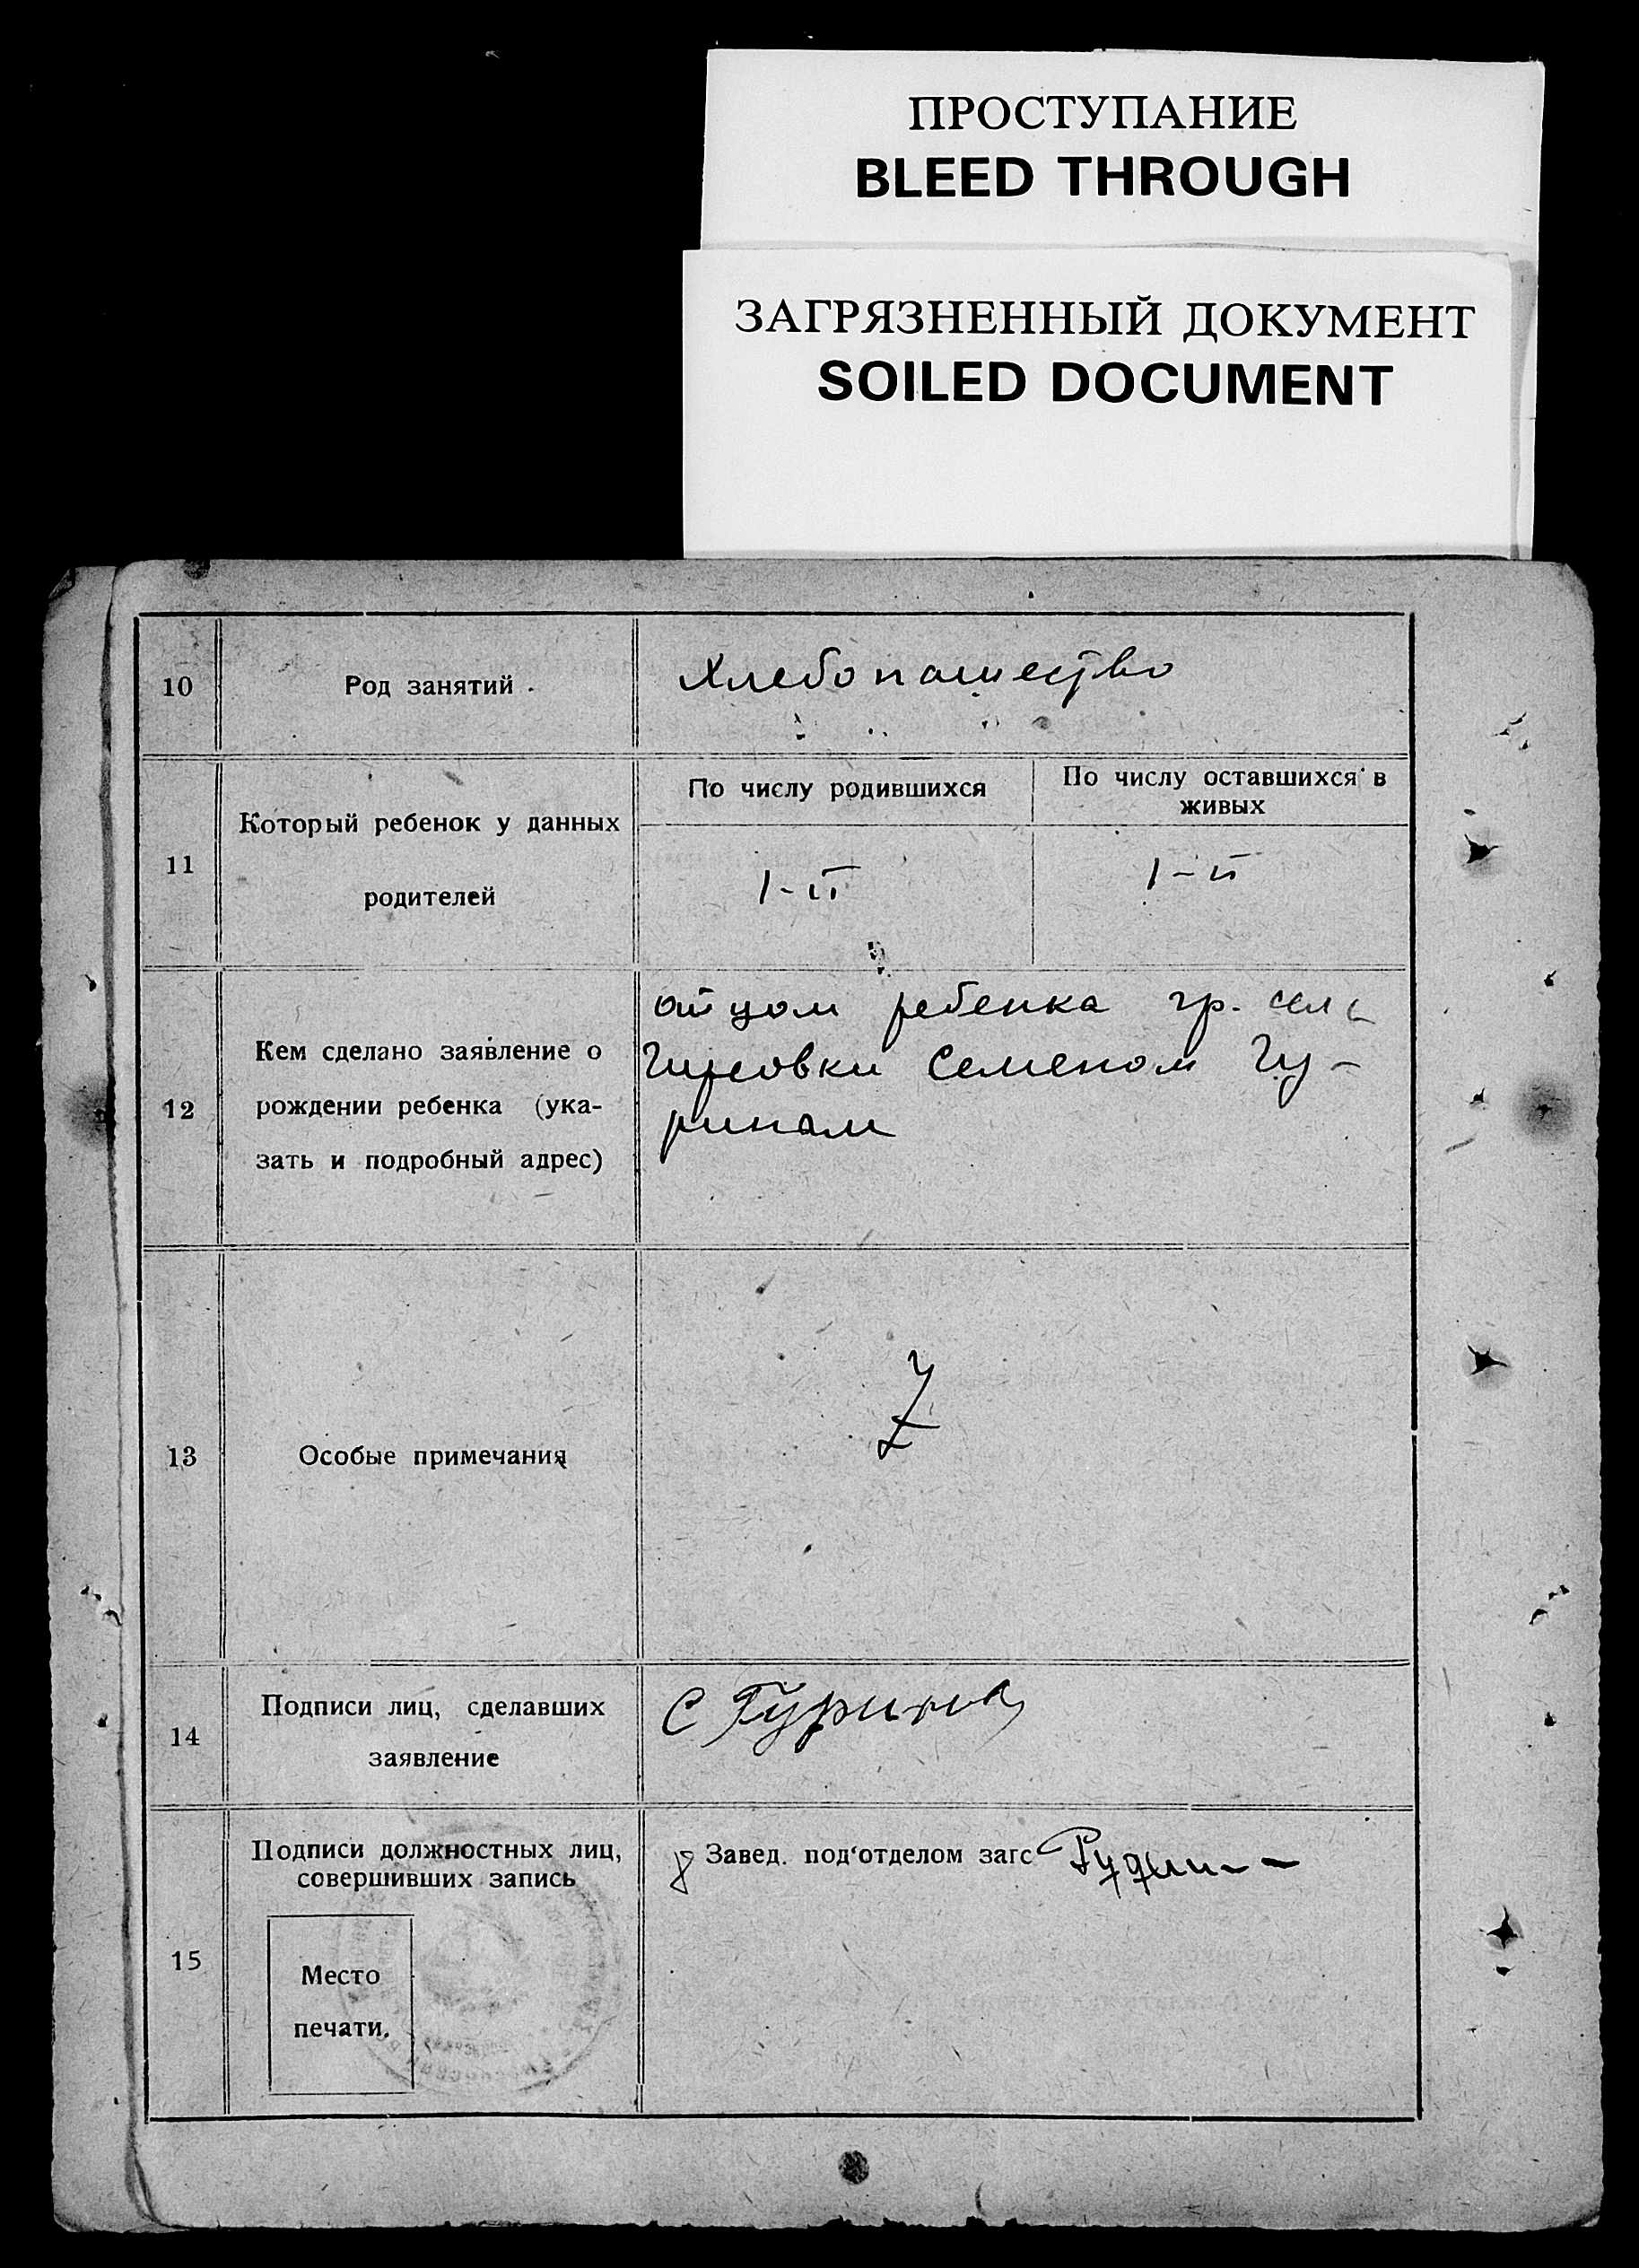 ПРОСТУПАНИЕ
BLEED THROUGH
ЗАГРЯЗНЕННЫЙ ДОКУМЕНТ
SOILED DOCUMENT
10
Род занятий
Хлебопашество
11
Который ребенок у данных
родителей
По числу родившихся
По числу оставшихся в
живых
1-й
1-й
12
Кем сделано заявление о
рождении ребенка (ука-
зать и подробный адрес)
отцом ребенка гр. села
Семеном Гу-
рином
13
Особые примечания
Z
14
Подписи лиц, сделавших
заявление
С Гурин
15
Подписи должностных лиц,
совершивших запись
Место
печати.
Завед. под'отделом загс